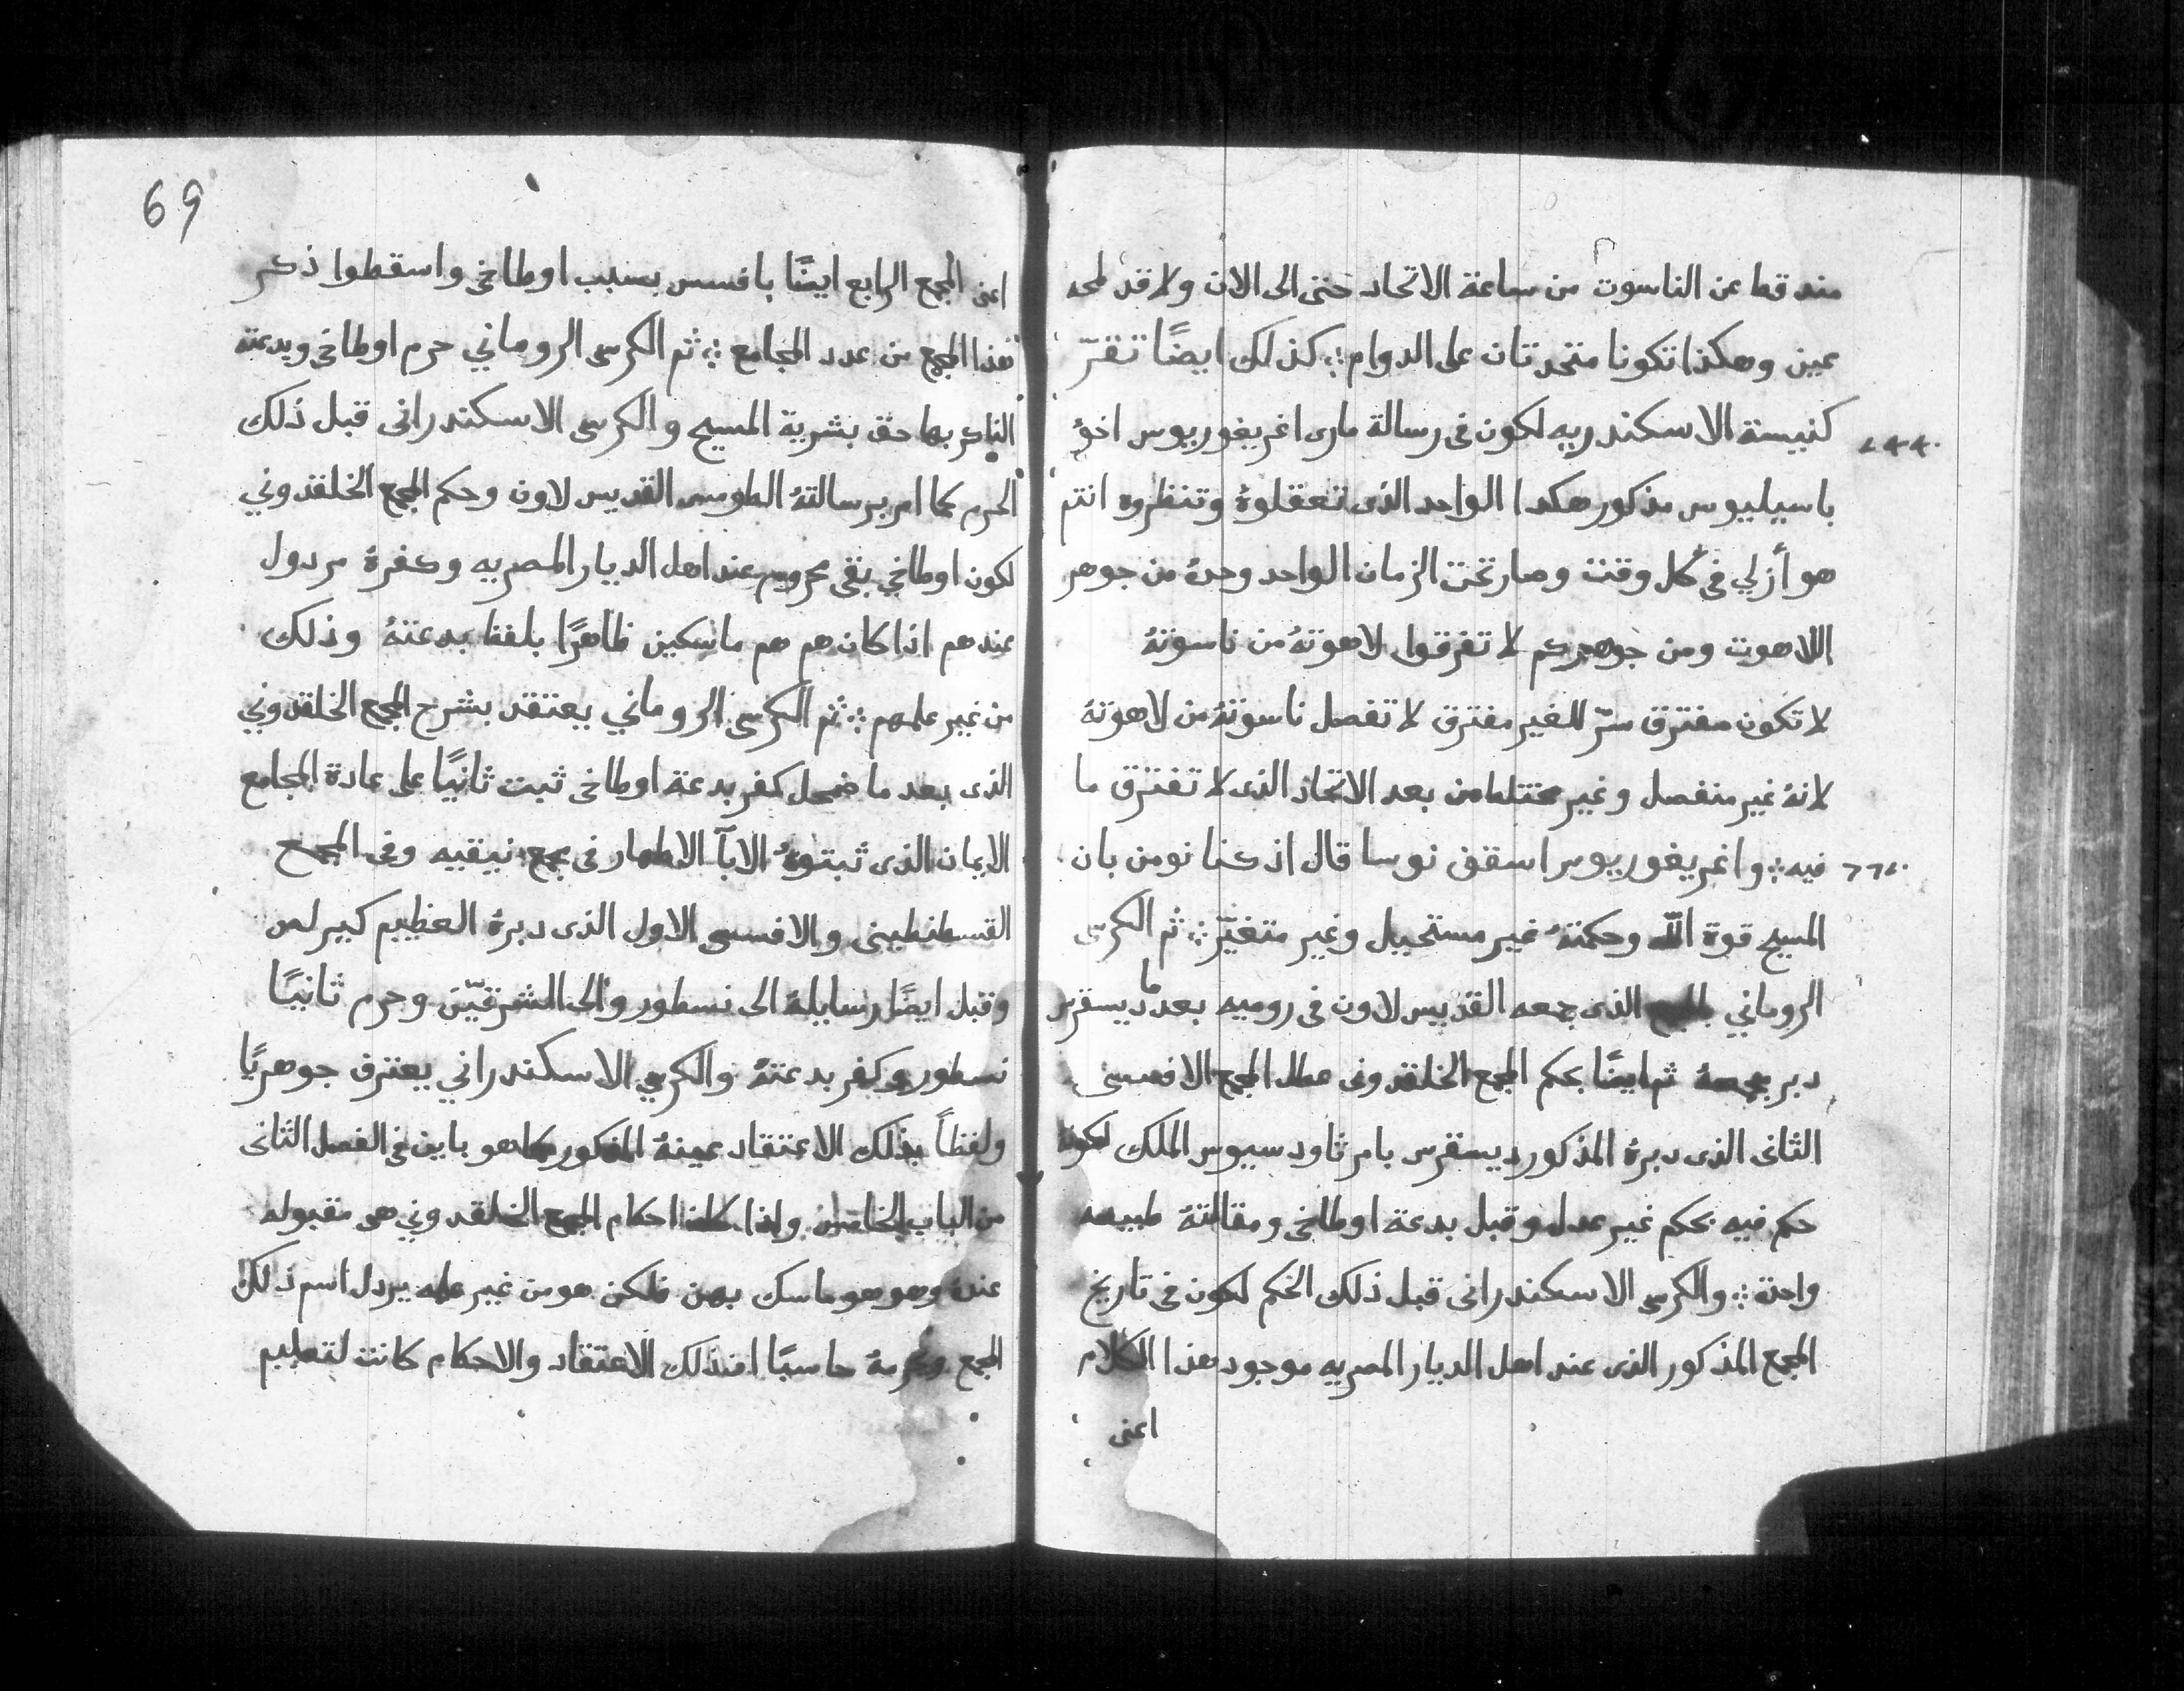 منه قط عن الناسوت من ساعة الاتحاد حتى الى الان ولا قد لمحه
عين وهكذا تكونا متحدتان على الدوام ⁘ كذلك ايضًا تقرّ
كنيسة الاسكندريه لكون فى رسالة مارى اغريغوريوس اخو
باسيليوس مذكور هكدا الواحد الذى تعقلوهُ وتنظروه انتم
هو أزلي فى كل وقت وصار تحت الزمان الواحد وحدهُ من جوهر
اللاهوت ومن جوهركم لا تفرقوا لاهوتهُ من ناسوتهُ
لا تكون مفترق سرّ للغير مفترق لا تفصل ناسوتهُ من لاهوتهُ
لانهُ غير منفصل وغير مختلط من بعد الاتحاد الذى لا تفترق ما
فيه ⁘ واغريغوريوس اسقف نوسا قال اذ كنا نومن بان
المسيح قوة اللّه وحكمتهُ غير مستحيل وغير متغيّر ⁘ ثم الكرسى
الروماني الذى جمعه القديس لاون فى روميه بعد ما ديسقرس
دبر مجمعهُ ثم ايضًا بحكم المجمع الخلقدونى عطل المجمع الافسسى
الثانى الذى دبرهُ المذكور ديسقرس بامر ثاودسيوس الملك لكونهُ
حكم فيه بحكم غير عدل وقبل بدعة اوطاخى ومقالتهُ طبيعه
واحدة ⁘ والكرسى الاسكندرانى قبل ذلك الحكم لكون فى تاريخ
المجمع المذكور الذى عند اهل الديار المصريه موجود هذا الكلام
اعنى
69
اعنى المجمع الرابع ايضًا بافسس بسبب اوطاخى واسقطوا ذكر
هذا المجمع من عدد المجامع ⁘ ثم الكرسى الروماني حرم اوطاخى وبدعته
الناكر بها حق بشرية المسيح والكرسى الاسكندرانى قبل ذلك
الحرم كما امر برسالتهُ الطومس القديس لاون وحكم المجمع الخلقدوني
لكون اوطاخي بقى محروم عند اهل الديار المصريه وكفرهُ مردول
عندهم اذا كان هم هم ماسكين ظاهرًا بلفظ بدعتهُ وذلك
من غير علمهم ⁘ ثم الكرسى الروماني يعتقد بشرح المجمع الخلقدوني
الذى بعد ما ضمحل كفر بدعة اوطاخى ثبت ثانيًا على عادة المجامع
الايمان الذى ثبتوهُ الابآ الاطهار فى مجمع نيقيه وفى المجمع
القسطنطينى والافسسى الاول الذى دبرهُ العظيم كيرلس
وقبل ايضًا رسايلهُ الى نسطور والى الشرقيّين وحرم ثانيًا
نسطور وكفر بدعتهُ والكرسي الاسكندراني يعترف جوهريًا
ولفظاً بذلك الاعتقاد عينهُ المذكور كما هو باين فى الفصل الثانى
من الباب الخامس ولذا احكام المجمع الخلقدوني هى مقبوله
عندهُ وهو هو ماسك بهن فلكن هو من غير علمه يردل اسم ذلك
المجمع ويحرمهُ حاسبًا ان ذلك الاعتقاد والاحكام كانت لتعليم